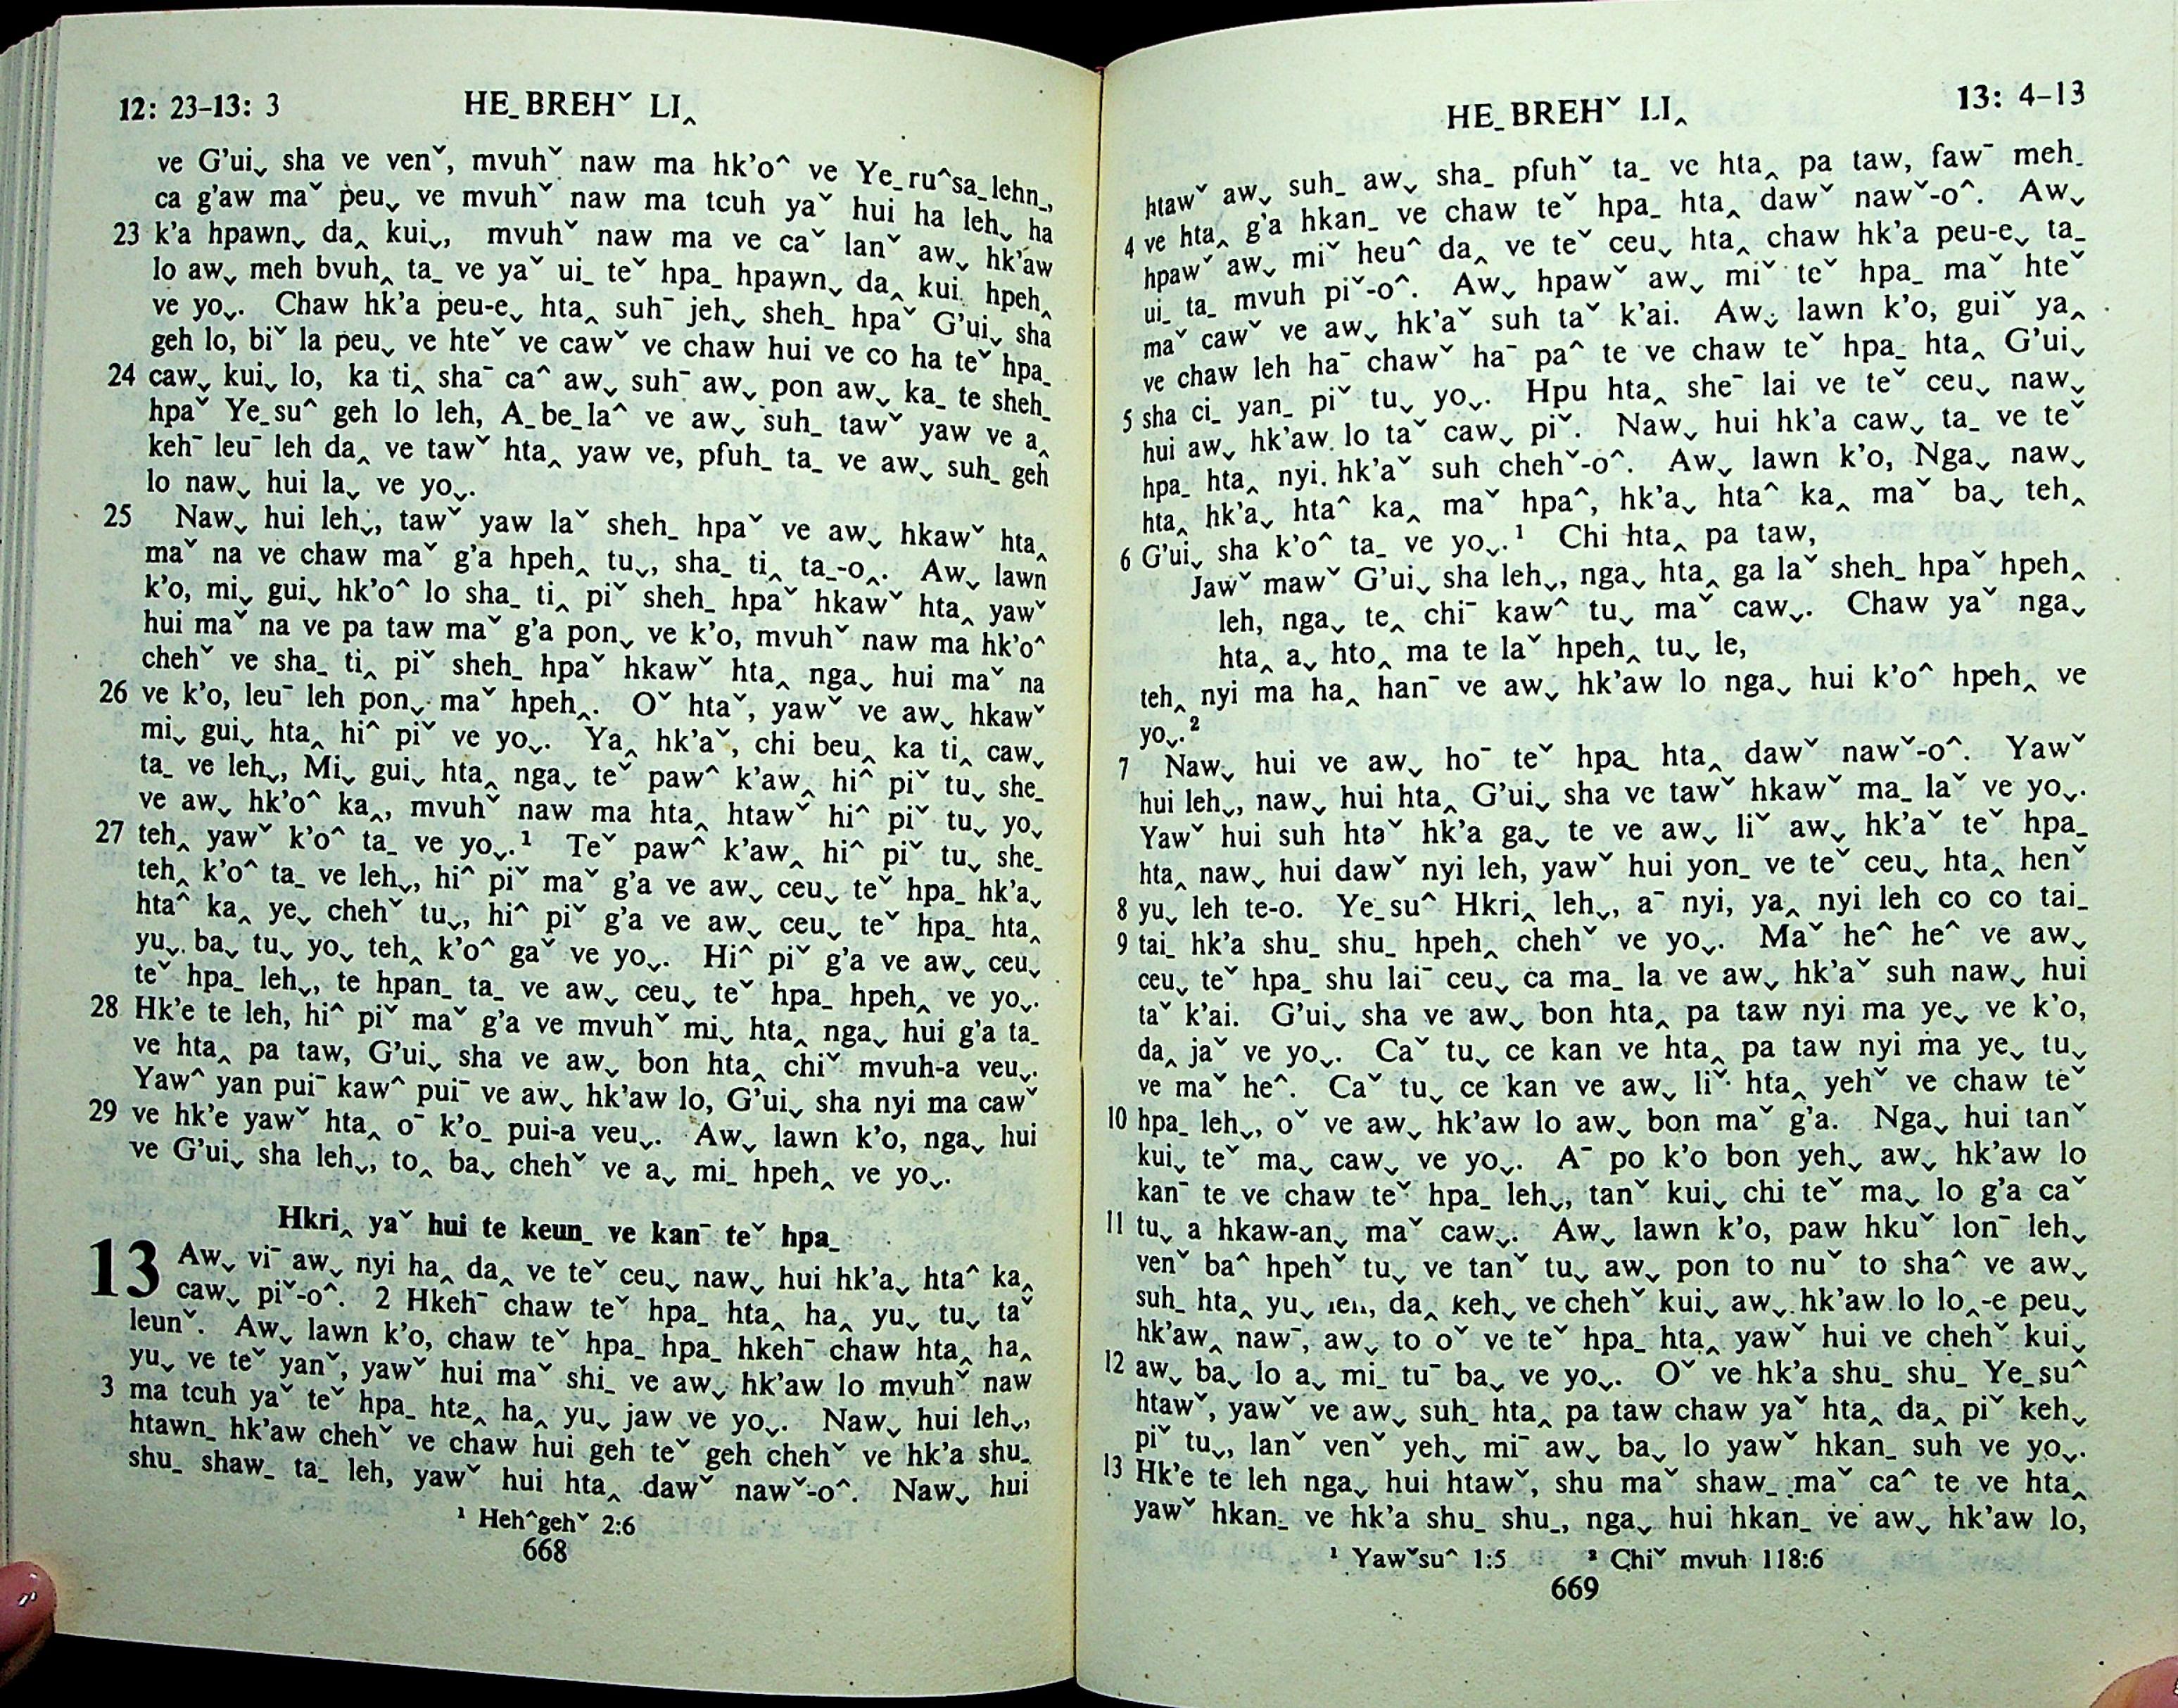 12: 23–13: 3 HE˗BREHˇ LI‸
ve G’uiˬ sha ve venˇ, mvuhˇ naw ma hk’o^ ve Ye˗ru^sa˗lehn˗,
ca g’aw maˇ peuˬ ve mvuhˇ naw ma tcuh yaˇ hui ha lehˬ ha
23 k’a hpawnˬ da‸ kuiˬ, mvuhˇ naw ma ve caˇ lanˇ awˬ hk’aw
lo awˬ meh bvuh‸ ta˗ ve yaˇ ui˗ teˇ hpa˗ hpawnˬ da‸ kuiˬ hpeh‸
ve yoˬ. Chaw hk’a peu-eˬ hta‸ suh¯ jehˬ sheh˗ hpaˇ G’uiˬ sha
geh lo, biˇ la peuˬ ve hteˇ ve cawˇ ve chaw hui ve co ha teˇ hpa˗
24 cawˬ kuiˬ lo, ka ti‸ sha¯ ca^ awˬ suh¯ awˬ pon awˬ ka˗ te sheh˗
hpaˇ Ye˗su^ geh lo leh, A˗be˗la^ ve awˬ suh˗ tawˇ yaw ve a‸
keh¯ leu¯ leh da‸ ve tawˇ hta‸ yaw ve, pfuh˗ ta˗ ve awˬ suh˗ geh
lo nawˬ hui laˬ ve yoˬ.
25 Nawˬ hui lehˬ, tawˇ yaw laˇ sheh˗ hpaˇ ve awˬ hkawˇ hta‸
maˇ na ve chaw maˇ g’a hpeh‸ tuˬ, sha˗ ti‸ ta˗-o‸. Awˬ lawn
k’o, miˬ guiˬ hk’o^ lo sha˗ ti‸ piˇ sheh˗ hpaˇ hkawˇ hta‸ yawˇ
hui maˇ na ve pa taw maˇ g’a ponˬ ve k’o, mvuhˇ naw ma hk’o^
chehˇ ve sha˗ ti‸ piˇ sheh˗ hpaˇ hkawˇ hta‸ ngaˬ hui maˇ na
26 ve k’o, leu¯ leh ponˬ maˇ hpeh‸. Oˇ htaˇ, yawˇ ve awˬ hkawˇ
miˬ guiˬ hta‸ hi^ piˇ ve yoˬ. Ya‸ hk’aˇ, chi beu‸ ka ti‸ cawˬ
ta˗ ve lehˬ, Miˬ guiˬ hta‸ ngaˬ teˇ paw^ k’aw‸ hi^ piˇ tuˬ she˗
ve awˬ hk’o^ ka‸, mvuhˇ naw ma hta‸ htawˇ hi^ piˇ tuˬ yoˬ
27 teh‸ yawˇ k’o^ ta˗ ve yoˬ.¹ Teˇ paw^ k’aw‸ hi^ piˇ tuˬ she˗
teh‸ k’o^ ta˗ ve lehˬ, hi^ piˇ maˇ g’a ve awˬ ceuˬ teˇ hpa˗ hk’aˬ
hta^ ka‸ yeˬ chehˇ tuˬ, hi^ piˇ g’a ve awˬ ceuˬ teˇ hpa˗ hta‸
yuˬ baˬ tuˬ yoˬ teh‸ k’o^ gaˇ ve yoˬ. Hi^ piˇ g’a ve awˬ ceuˬ
teˇ hpa˗ lehˬ, te hpan˗ ta˗ ve awˬ ceuˬ teˇ hpa˗ hpeh‸ ve yoˬ.
28 Hk’e te leh, hi^ piˇ maˇ g’a ve mvuhˇ miˬ hta‸ ngaˬ hui g’a ta˗
ve hta‸ pa taw, G’uiˬ sha ve awˬ bon hta‸ chiˇ mvuh-a veuˬ.
Yaw^ yan pui¯ kaw^ pui¯ ve awˬ hk’aw lo, G’uiˬ sha nyi ma cawˇ
29 ve hk’e yawˇ hta‸ o¯ k’o˗ pui-a veuˬ. Awˬ lawn k’o, ngaˬ hui
ve G’uiˬ sha lehˬ, to‸ baˬ chehˇ ve aˬ mi˗ hpeh‸ ve yoˬ.
Hkri‸ yaˇ hui te keun˗ ve kan¯ teˇ hpa˗
13 Awˬ vi¯ awˬ nyi ha‸ da‸ ve teˇ ceuˬ nawˬ hui hk’aˬ hta^ ka‸
cawˬ piˇ-o^. 2 Hkeh¯ chaw teˇ hpa˗ hta‸ ha‸ yuˬ tuˬ taˇ
leunˇ. Awˬ lawn k’o, chaw teˇ hpa˗ hpa˗ hkeh¯ chaw hta‸ ha‸
yuˬ ve teˇ yanˇ, yawˇ hui maˇ shi˗ ve awˬ hk’aw lo mvuhˇ naw
3 ma tcuh yaˇ teˇ hpa˗ hta‸ ha‸ yuˬ jaw ve yoˬ. Nawˬ hui lehˬ,
htawn˗ hk’aw chehˇ ve chaw hui geh teˇ geh chehˇ ve hk’a shu˗
shu˗ shaw˗ ta˗ leh, yawˇ hui hta‸ dawˇ nawˇ-o^. Nawˬ hui
¹ Heh^gehˇ 2:6
668
HE˗BREHˇ LI‸ 13: 4–13
htawˇ awˬ suh˗ awˬ sha˗ pfuhˇ ta˗ ve hta‸ pa taw, faw¯ meh˗
4 ve hta‸ g’a hkan˗ ve chaw teˇ hpa˗ hta‸ dawˇ nawˇ-o^. Awˬ
hpawˇ awˬ miˇ heu^ da‸ ve teˇ ceuˬ hta‸ chaw hk’a peu-eˬ ta˗
ui˗ ta˗ mvuh piˇ-o^. Awˬ hpawˇ awˬ miˇ teˇ hpa˗ maˇ hteˇ
maˇ cawˇ ve awˬ hk’aˇ suh taˇ k’ai. Awˬ lawn k’o, guiˇ ya‸
ve chaw leh ha¯ chawˇ ha¯ pa^ te ve chaw teˇ hpa˗ hta‸ G’uiˬ
5 sha ci˗ yan˗ piˇ tuˬ yoˬ. Hpu hta‸ she¯ lai ve teˇ ceuˬ nawˬ
hui awˬ hk’aw lo taˇ cawˬ piˇ. Nawˬ hui hk’a cawˬ ta˗ ve teˇ
hpa˗ hta‸ nyi hk’aˇ suh chehˇ-o^. Awˬ lawn k’o, Ngaˬ nawˬ
hta‸ hk’aˬ hta^ ka‸ maˇ hpa^, hk’aˬ hta^ ka‸ maˇ baˬ teh‸
6 G’uiˬ sha k’o^ ta˗ ve yoˬ.¹ Chi hta‸ pa taw,
Jawˇ mawˇ G’uiˬ sha lehˬ, ngaˬ hta‸ ga laˇ sheh˗ hpaˇ hpeh‸
leh, ngaˬ te‸ chi¯ kaw^ tuˬ maˇ cawˬ. Chaw yaˇ ngaˬ
hta‸ aˬ hto‸ ma te laˇ hpeh‸ tuˬ le,
teh‸ nyi ma ha‸ han¯ ve awˬ hk’aw lo ngaˬ hui k’o^ hpeh‸ ve
yoˬ.²
7 Nawˬ hui ve awˬ ho¯ teˇ hpa˗ hta‸ dawˇ nawˇ-o^. Yawˇ
hui lehˬ, nawˬ hui hta‸ G’uiˬ sha ve tawˇ hkawˇ ma˗ laˇ ve yoˬ.
Yawˇ hui suh htaˇ hk’a gaˬ te ve awˬ liˇ awˬ hk’aˇ teˇ hpa˗
hta‸ nawˬ hui dawˇ nyi leh, yawˇ hui yon˗ ve teˇ ceuˬ hta‸ henˇ
8 yuˬ leh te-o. Ye˗su^ Hkri‸ lehˬ, a¯ nyi, ya‸ nyi leh co co tai˗
9 tai˗ hk’a shu˗ shu˗ hpeh‸ chehˇ ve yoˬ. Maˇ he^ he^ ve awˬ
ceuˬ teˇ hpa˗ shu lai¯ ceuˬ ca ma˗ la ve awˬ hk’aˇ suh nawˬ hui
taˇ k’ai. G’uiˬ sha ve awˬ bon hta‸ pa taw nyi ma yeˬ ve k’o,
da‸ jaˇ ve yoˬ. Caˇ tuˬ ce kan ve hta‸ pa taw nyi ma yeˬ tuˬ
ve maˇ he^. Caˇ tuˬ ce kan ve awˬ liˇ hta‸ yehˇ ve chaw teˇ
10 hpa˗ lehˬ, oˇ ve awˬ hk’aw lo awˬ bon maˇ g’a. Ngaˬ hui tanˇ
kuiˬ teˇ maˬ cawˬ ve yoˬ. A¯ po k’o bon yehˬ awˬ hk’aw lo
kan¯ te ve chaw teˇ hpa˗ lehˬ, tanˇ kuiˬ chi teˇ maˬ lo g’a caˇ
11 tuˬ a hkaw-anˬ maˇ cawˬ. Awˬ lawn k’o, paw hkuˇ lon¯ lehˬ
venˇ ba^ hpehˇ tuˬ ve tanˇ tuˬ awˬ pon to nuˇ to sha^ ve awˬ
suh˗ hta‸ yuˬ leh, da‸ kehˬ ve chehˇ kuiˬ awˬ hk’aw lo lo‸-e peuˬ
hk’aw‸ naw¯, awˬ to oˇ ve teˇ hpa˗ hta‸ yawˇ hui ve chehˇ kuiˬ
12 awˬ baˬ lo aˬ mi˗ tu¯ baˬ ve yoˬ. Oˇ ve hk’a shu˗ shu˗ Ye˗su^
htawˇ, yawˇ ve awˬ suh˗ hta‸ pa taw chaw yaˇ hta‸ da‸ piˇ kehˬ
piˇ tuˬ, lanˇ venˇ yehˬ mi¯ awˬ baˬ lo yawˇ hkan˗ suh ve yoˬ.
13 Hk’e te leh ngaˬ hui htawˇ, shu maˇ shaw˗ maˇ ca^ te ve hta‸
yawˇ hkan˗ ve hk’a shu˗ shu˗, ngaˬ hui hkan˗ ve awˬ hk’aw lo,
¹ Yawˇsu^ 1:5 ² Chiˇ mvuh 118:6
669